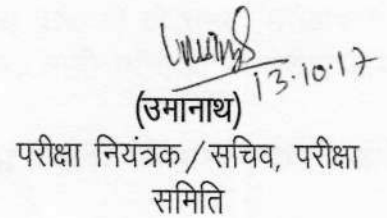 13.10.17
(उमानाथ)
परीक्षा नियंत्रक / सचिव, परीक्षा
समिति